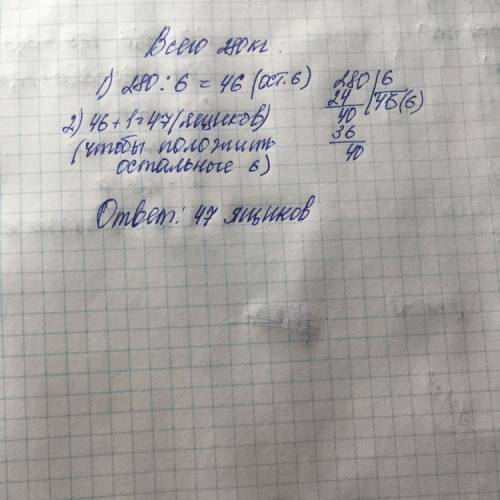 Всего 280 кг.
1) 280 : 6 = 46 (ост. 6)
2) 46 + 1 = 47 (ящиков)
(чтобы положить
остальные 6)
Ответ: 47 ящиков
280 | 6
24 | 46 (6)
40
36
40